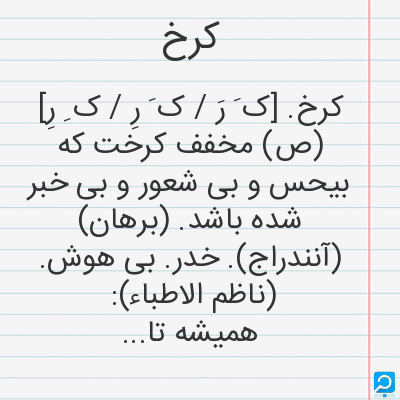 کرخ
کرخ. [ک َ رَ / ک َ رِ / ک ِ رِ]
(ص) مخفف کرخت که
بیحس و بی شعور و بی خبر
شده باشد. (برهان)
(آنندراج). خدر. بی هوش.
(ناظم الاطباء):
همیشه تا...